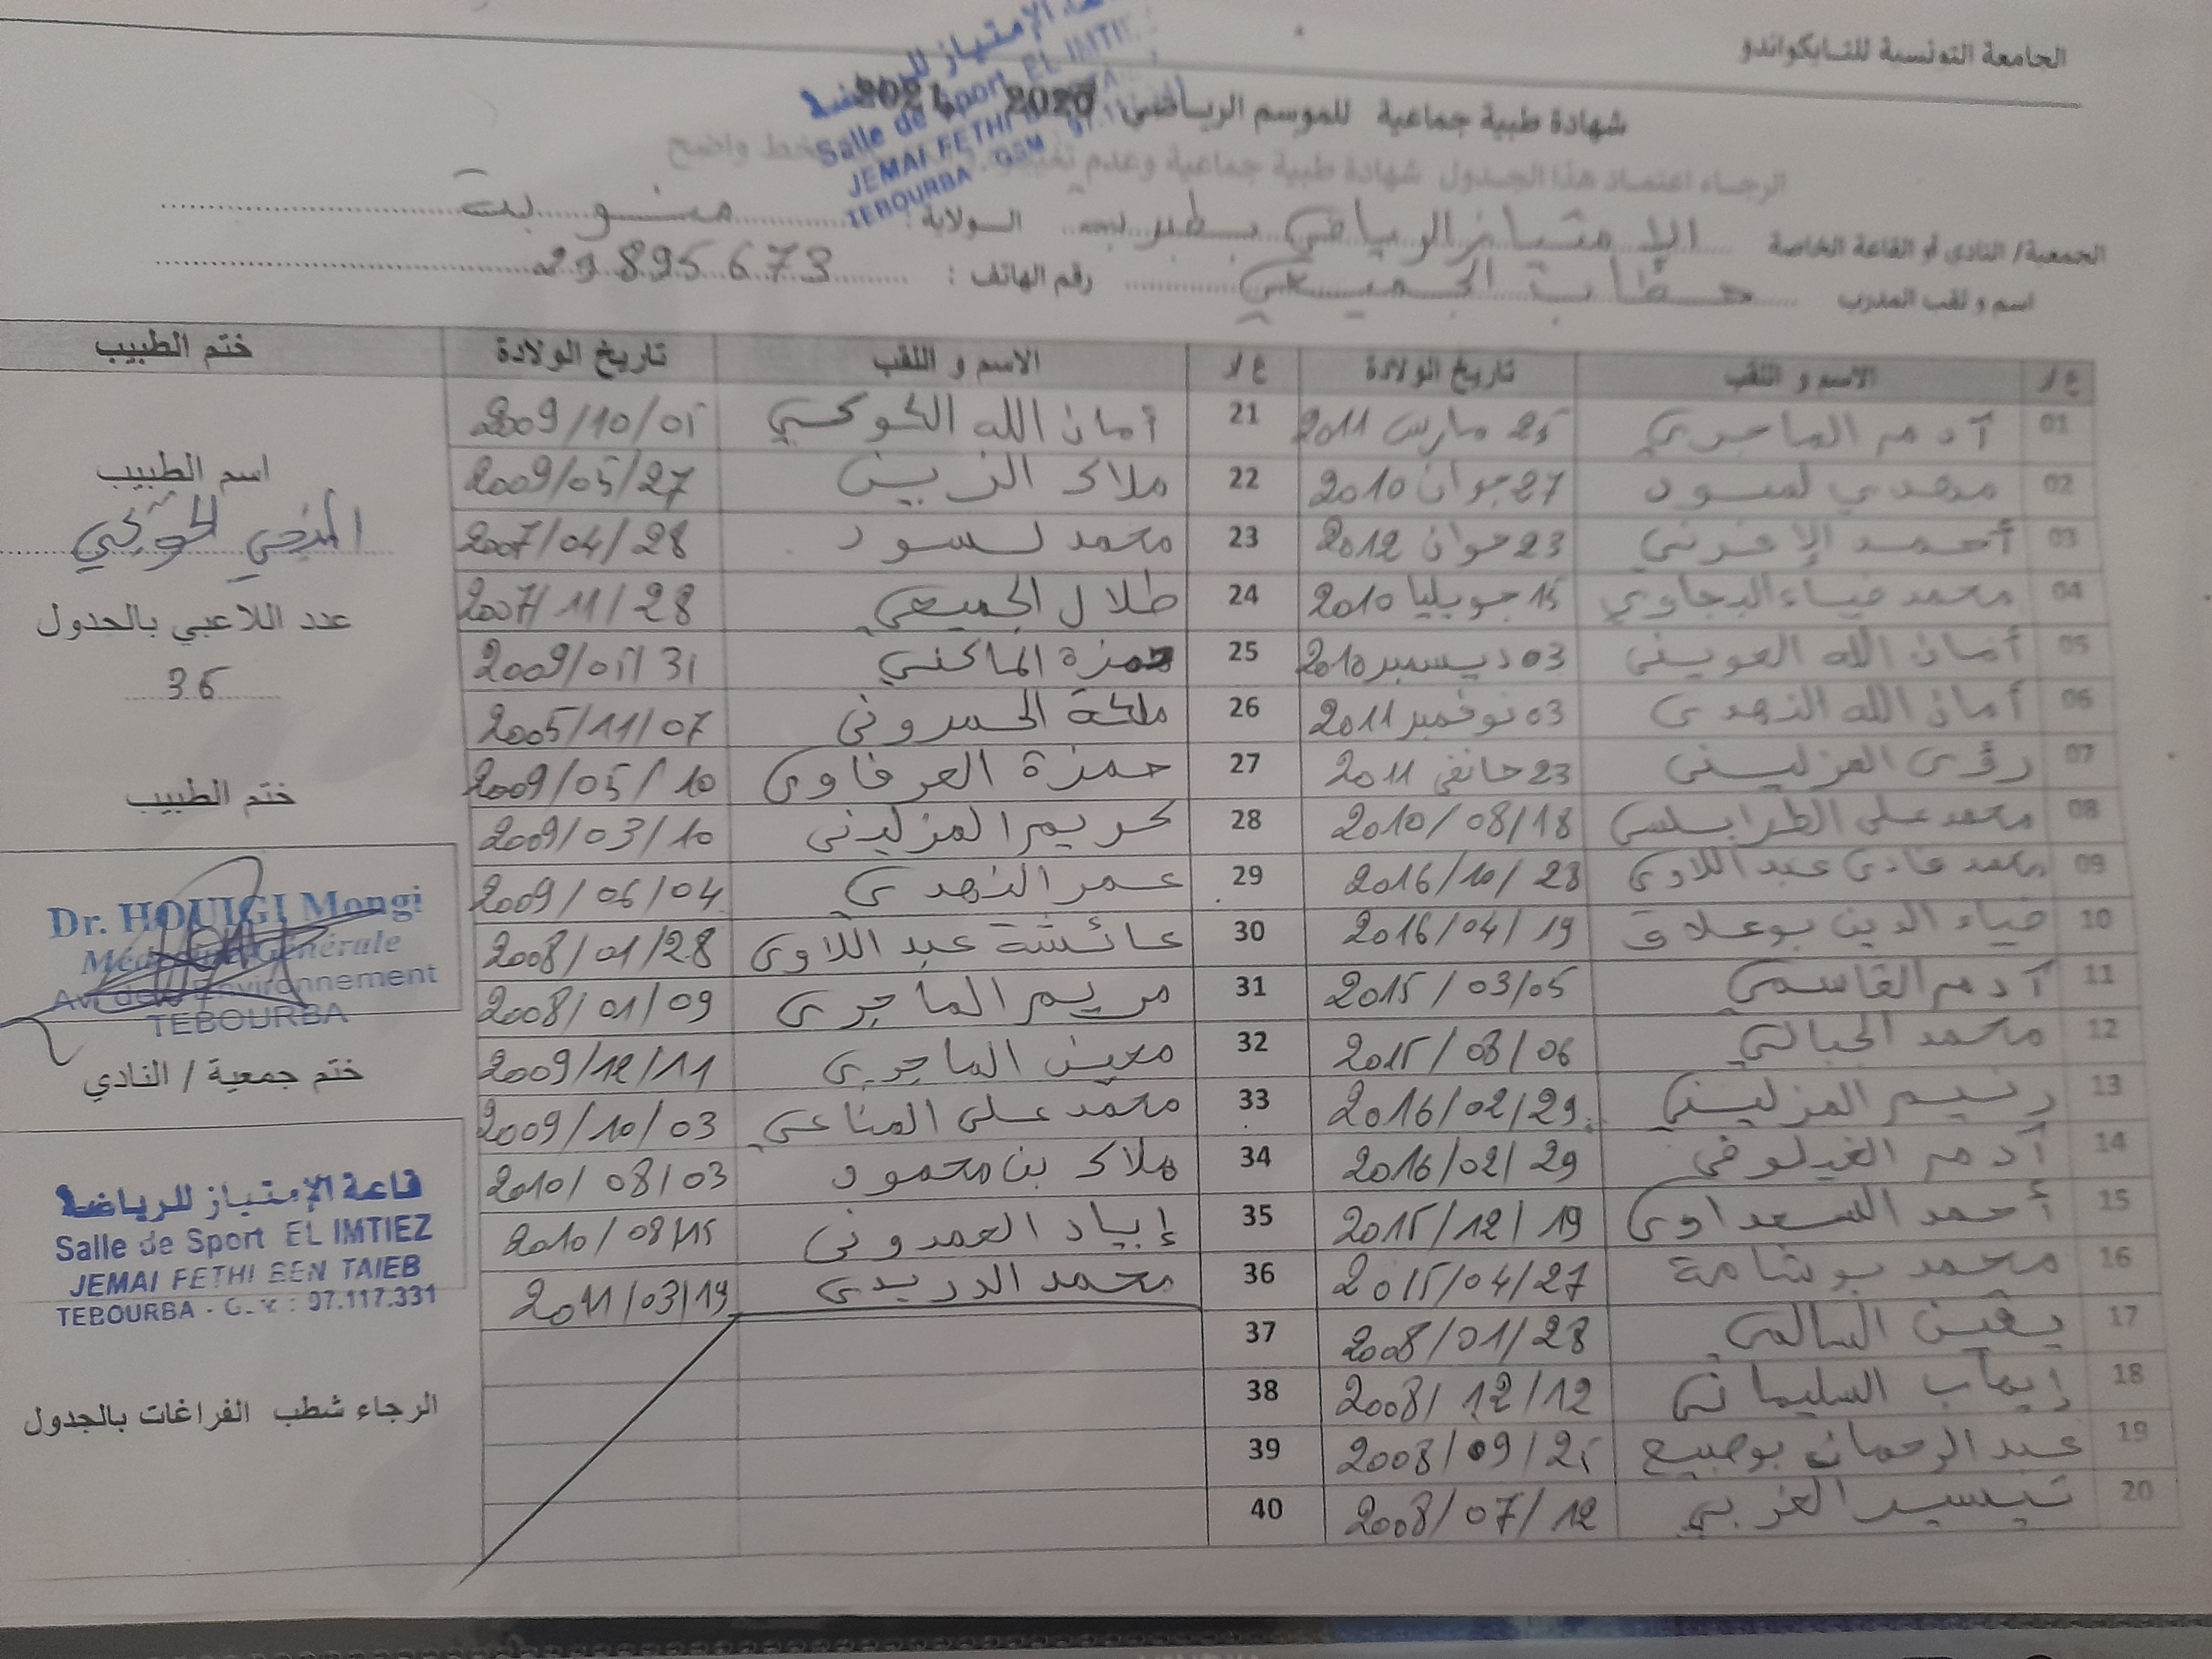 الجامعة التونسية للتايكواندو
شهادة طبية جماعية للموسم الرياضي 2020 2021
الرجاء اعتماد هذا الجدول شهادة طبية جماعية وعدم بخط واضح
Salle de Sport EL IMTIEZ
JEMAI FETHI
TEBOURBA - GSM
الجمعية/ النادي أو القاعة الخاصة الإمتياز الرياضي بطبربة الولاية: منوبة
اسم و لقب المدرب حطاب الجميعي رقم الهاتف : 29895673
ع/ر الاسم و اللقب تاريخ الولادة ع/ر الاسم و اللقب تاريخ الولادة ختم الطبيب
01 آدم الماجري 25 مارس 2011 21 أمان الله الكوكي 2009/10/01
02 مهدي لسود 27 جوان 2010 22 ملاك الزين 2009/05/27
03 أحمد 23 جوان 2012 23 محمد لسود 2007/04/28
04 محمد ضياء البجاوي 15 جويليا 2010 24 طلال الجميعي 2007/11/28
05 أمان الله العويني 03 ديسمبر 2010 25 حمزة الماكني 2009/01/31
06 أمان الله النهدي 03 نوفمبر 2011 26 ملكة 2005/11/07
07 رؤى المزليني 23 جانفي 2011 27 حمزة العرفاوي 2009/05/10
08 محمد علي الطرابلسي 2010/08/18 28 كريم المزليني 2009/03/10
09 محمد فادي عبد اللاوي 2016/10/28 29 عمر النهدي 2009/06/04
10 ضياء الدين بوعلاق 2016/04/19 30 عائشة عبد اللاوي 2008/01/28
11 آدم القاسمي 2015/03/05 31 مريم الماجري 2008/01/09
12 محمد الجبالي 2015/08/06 32 معين الماجري 2009/12/11
13 رنيم المزليني 2016/02/29 33 محمد علي المناعي 2009/10/03
14 آدم الغيلوفي 2016/02/29 34 ملاك بن محمود 2010/08/03
15 أحمد السعداوي 2015/12/19 35 إياد العمدوني 2010/08/15
16 محمد بوشامة 2015/04/27 36 محمد الدريدي 2011/03/19
17 يقين السالمي 2008/01/28 37
18 إيهاب السليماني 2008/12/12 38
19 عبد الرحمان بوصبيع 2008/09/25 39
20 تيسير الغربي 2008/07/12 40
اسم الطبيب
المنجي الحويجي
عدد اللاعبي بالجدول
36
ختم الطبيب
Dr. HOUIGI Mongi
Médecine Générale
Av. de l'Environnement
TEBOURBA
ختم جمعية / النادي
قاعة الإمتياز للرياضة
Salle de Sport EL IMTIEZ
JEMAI FETHI BEN TAIEB
TEBOURBA - G.S.M : 97.117.331
الرجاء شطب الفراغات بالجدول